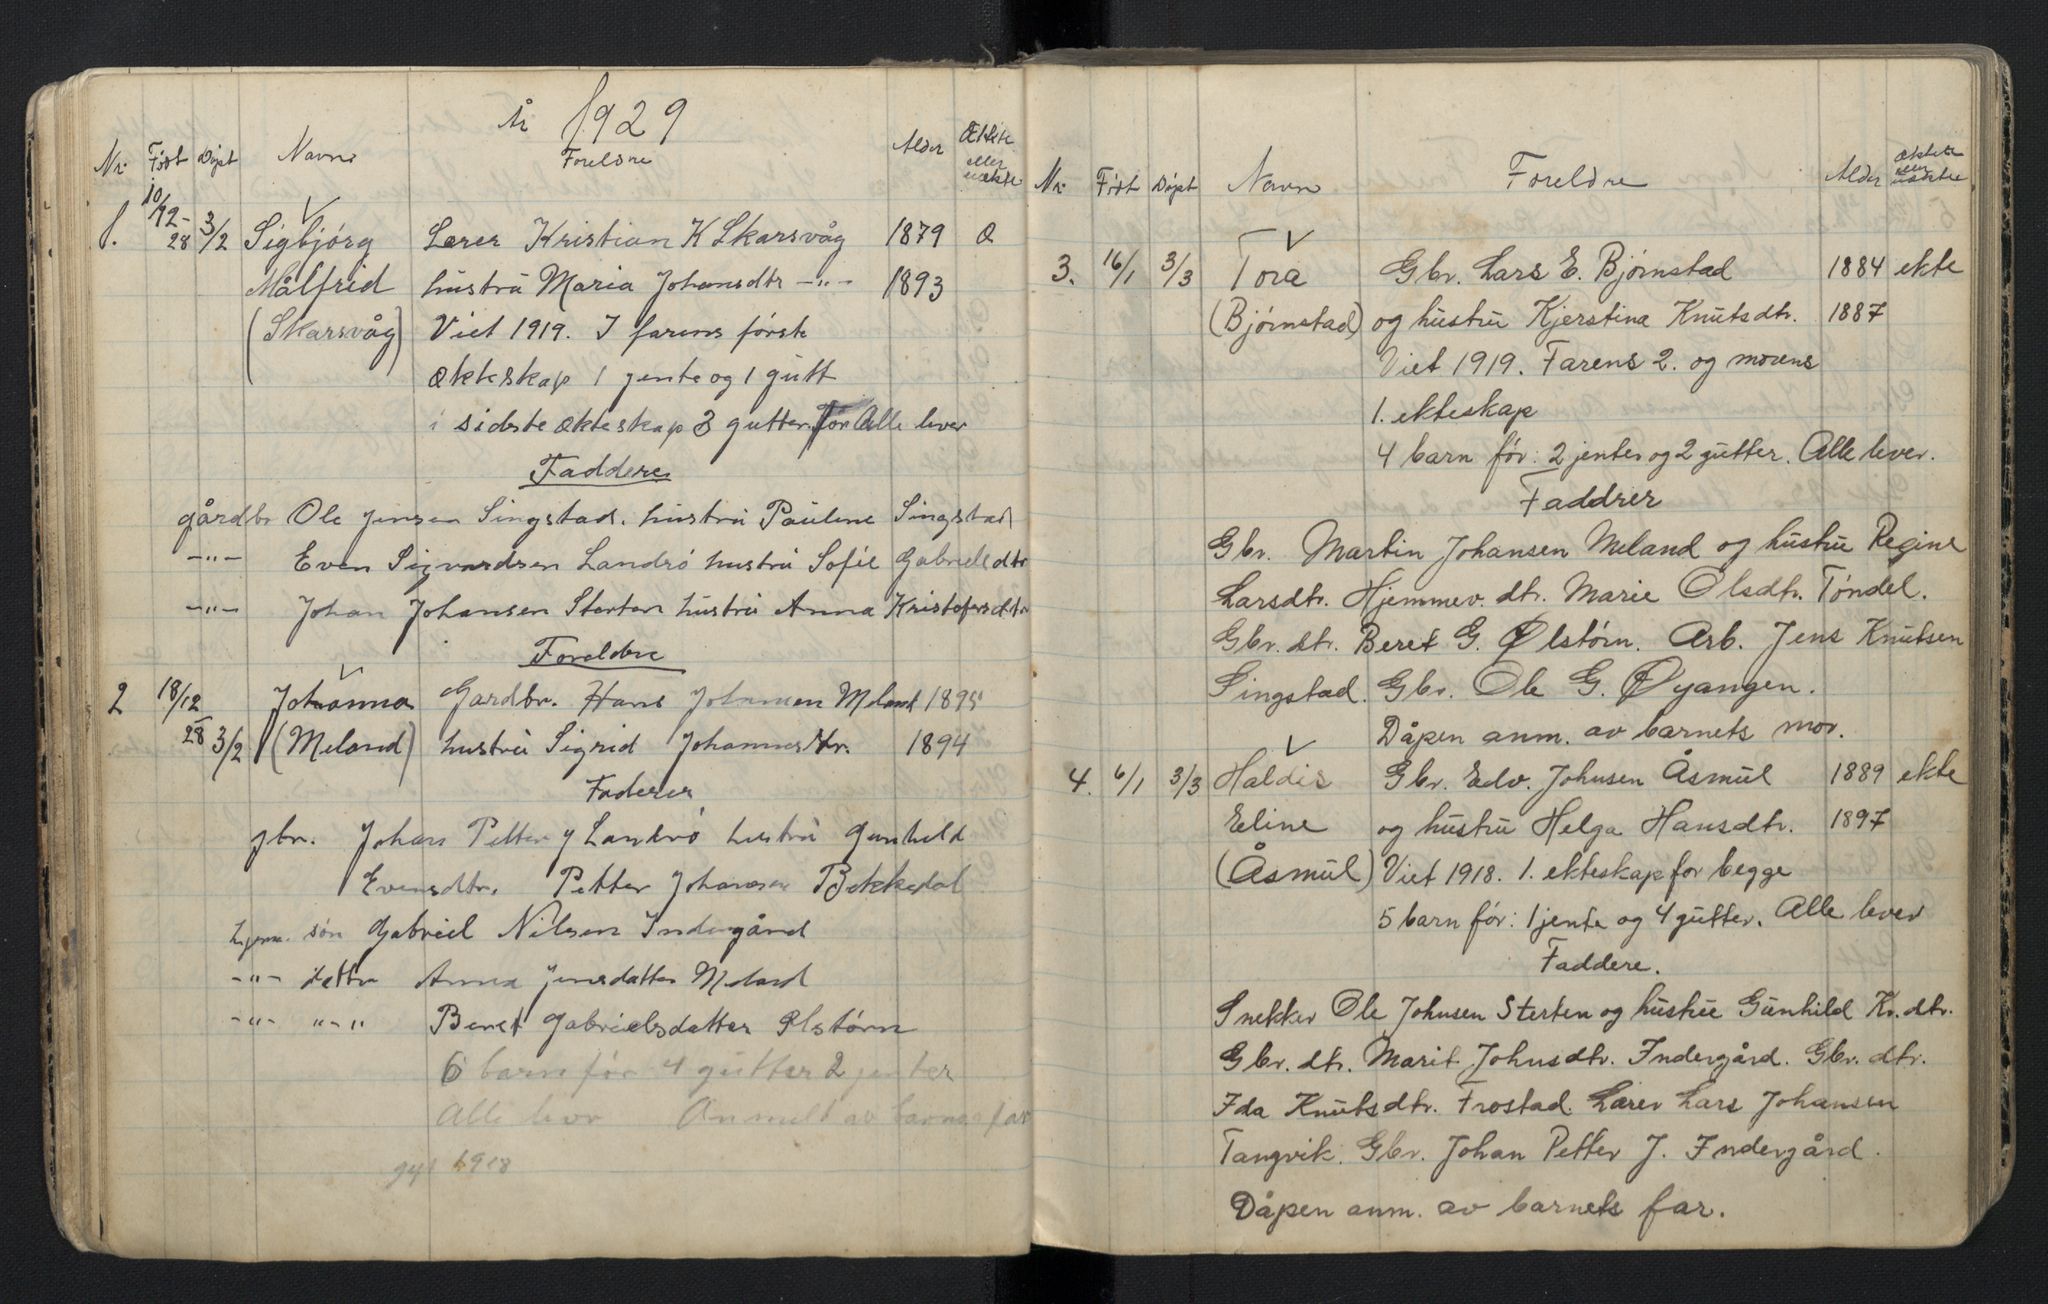 År 1929
Nr. Født Døpt Navn Foreldre Alder Ækte eller uækte
1. 10/12-28 3/2 Sigbjørg Lærer Kristian K Skarsvåg 1879 Æ
Målfrid hustru Maria Johansdtr -"- 1893
(Skarsvåg) Viet 1919. I farens første
ækteskap 1 jente og 1 gutt
i sidste ækteskap 3 gutter før Alle lever
Faddere
gårdbr Ole Jensen Singstad. hustru Pauline Singstad
-"- Even Sigvardsen Landrø hustru Sofie Gabrielsdtr
-"- Johan Johansen Sterten hustru Anna Kristofersdtr
Foreldre
2 18/12 Johanna Gardbr. Hans Johansen Meland 1895
28 3/2 (Meland) hustru Sigrid Johannesdtr. 1894
Faderer
gbr. Johan Petter J Landrø hustru Gunhild
Evensdtr. Petter Johansen Bekkedal
hjem. søn Gabriel Nilsen Indergård
-"- datter Anna Jensdatter Meland
-"- "-" Beret Gabrielsdatter Ølstørn
6 barn før 4 gutter 2 jenter
Alle lever Anmeldt av barnas far
gift 1918
Nr. Født Døpt Navn Foreldre Alder Ækte eller uækte
3. 16/1 3/3 Tora Gbr. Lars E. Bjørnstad 1884 ekte
(Bjørnstad) og hustru Kjerstina Knutsdtr. 1887
Viet 1919. Farens 2. og morens
1. ekteskap
4 barn før: 2 jenter og 2 gutter. Alle lever.
Faddrer
Gbr. Martin Johansen Meland og hustru Regine
Larsdtr. Hjemmev. dtr. Marie Olsdtr. Tøndel.
Gbr. dtr. Beret G. Ølstørn. Arb. Jens Knutsen
Singstad. Gbr. Ole G. Øyangen.
Dåpen anm. av barnets mor.
4. 6/1 3/3 Haldis Gbr. Edv. Johnsen Åsmul 1889 ekte
Eline og hustru Helga Hansdtr. 1897
(Åsmul) Viet 1918. 1. ekteskap for begge
5 barn før: 1 jente og 4 gutter. Alle lever
Faddere.
Snekker Ole Johnsen Sterten og hustru Gunhild Kr.dtr.
Gbr. dtr. Marit Johnsdtr. Indergård. Gbr. dtr.
Ida Knutsdtr. Frostad. Lærer Lars Johansen
Tangvik. Gbr. Johan Petter J. Indergård.
Dåpen anm. av barnets far.